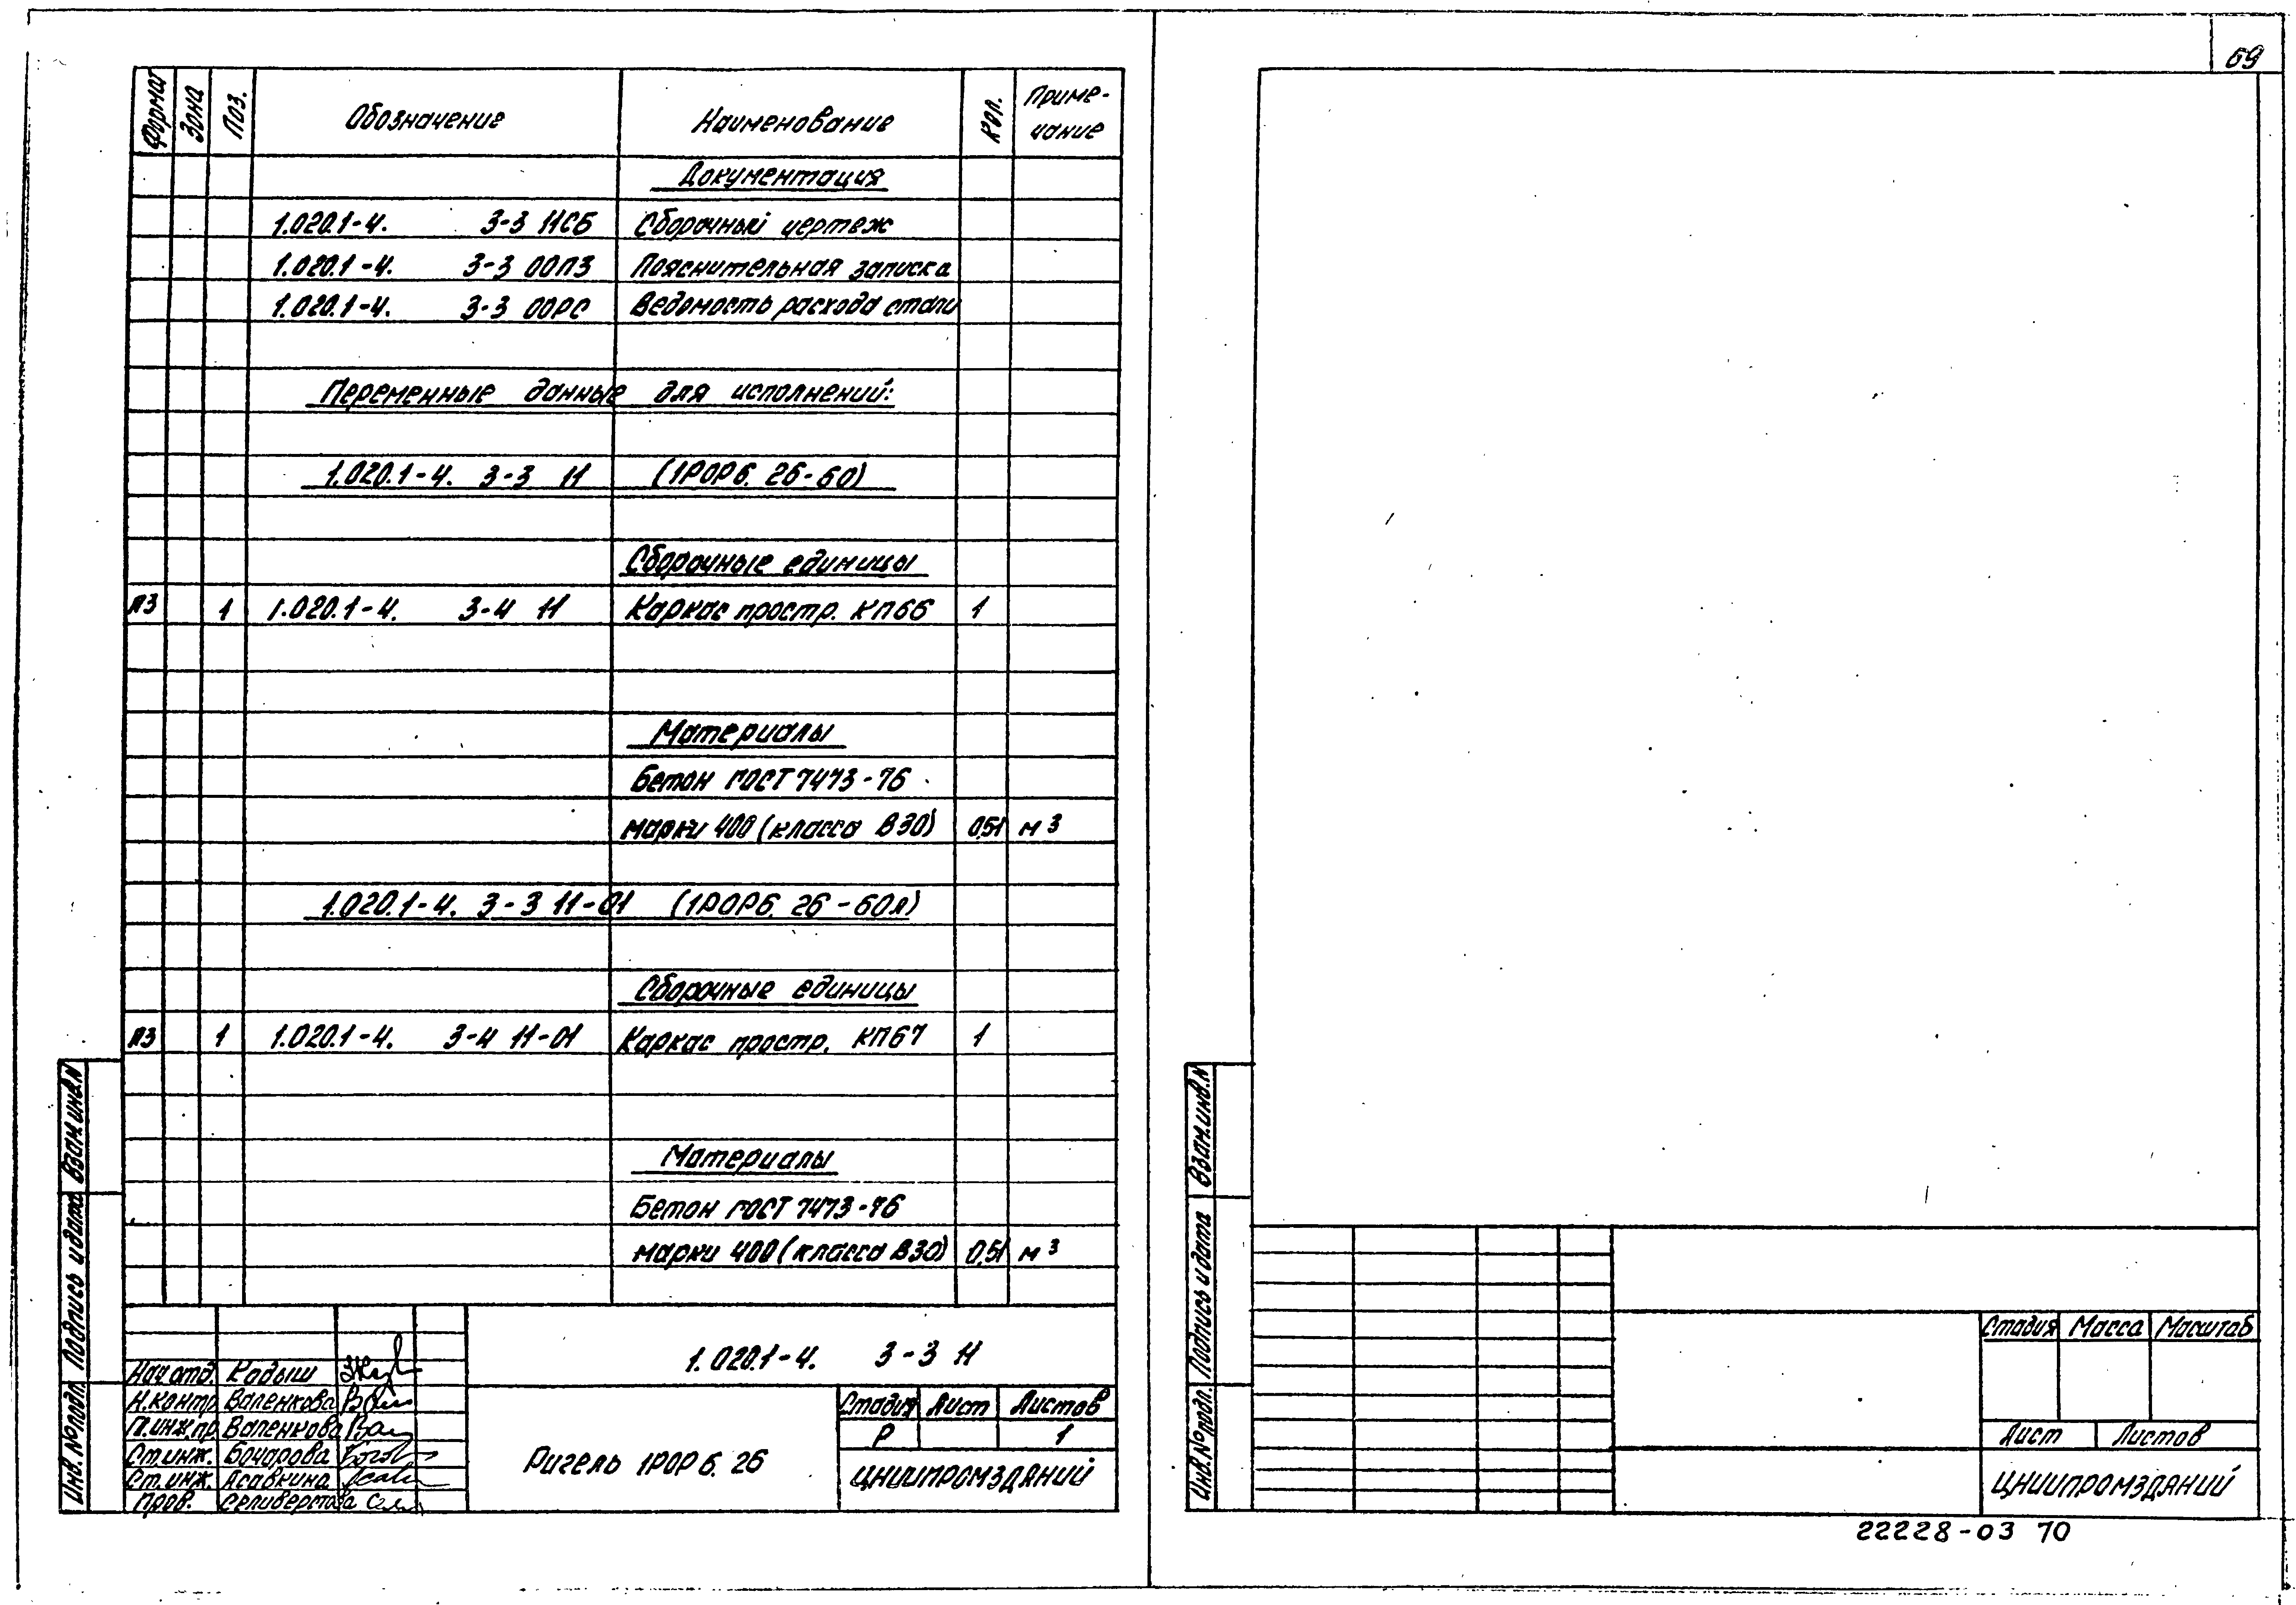 69
Формат Зона Поз. Обозначение Наименование Кол. Приме-
чание
Документация
1.020.1-4. 3-3 11СБ Сборочный чертеж
1.020.1-4. 3-3 00ПЗ Пояснительная записка
1.020.1-4. 3-3 00РС Ведомость расхода стали
Переменные данные для исполнений:
1.020.1-4. 3-3 11 (1РОР6. 26-60)
Сборочные единицы
А3 1 1.020.1-4. 3-4 11 Каркас простр. КП66 1
Материалы
Бетон ГОСТ 7473-76
марки 400 (класса В30) 0,51 м3
1.020.1-4. 3-3 11-01 (1РОР6. 26-60л)
Сборочные единицы
А3 1 1.020.1-4. 3-4 11-01 Каркас простр. КП67 1
Материалы
Бетон ГОСТ 7473-76
марки 400 (класса В30) 0,51 м3
Инв.№подл. Подпись и дата Взам.инв.N
1.020.1-4. 3-3 11
Нач.отд. Кадыш
Н.контр Валенкова
Гл.инж.пр. Валенкова
Ст.инж. Бочарова
Ст.инж. Асавкина
Пров. Селиверстова
Ригель 1РОР6. 26
Стадия Лист Листов
Р 1
ЦНИИПРОМЗДАНИЙ
Инв.№подл. Подпись и дата Взам.инв.N
Стадия Масса Масштаб
Лист Листов
ЦНИИПРОМЗДАНИЙ
22228-03 70